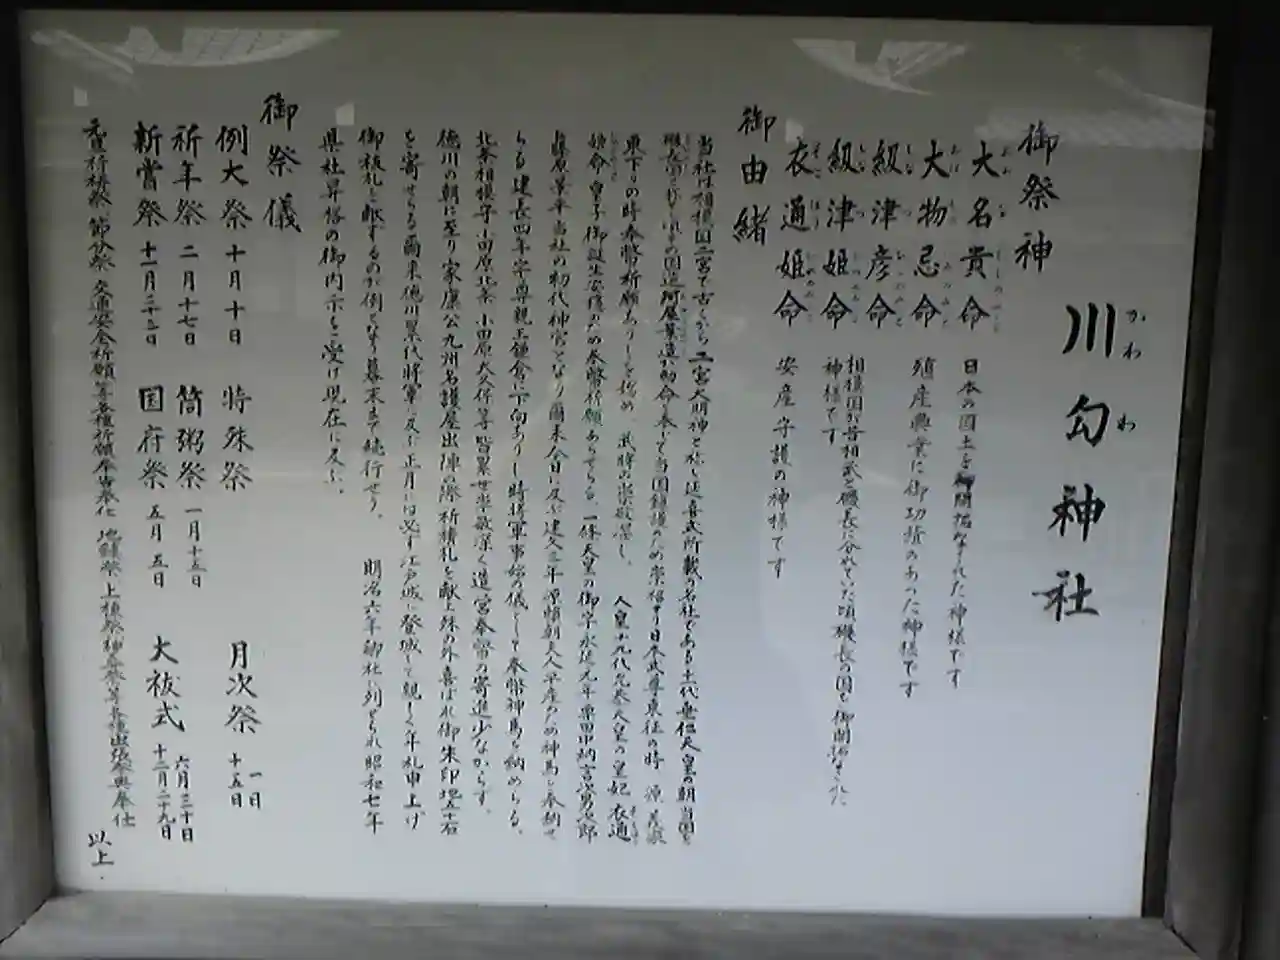 川勾神社
かわわ
御祭神
大名貴命 日本の国土を御開拓なされた神様です
大物忌命 殖産興業に御功績のあった神様です
級津彦命
級津姫命
相模国が昔相武と磯長に分れていた頃磯長の国を御開拓なされた
神様です
衣通姫命 安産守護の神様です
御由緒
当社は相模国二宮で古くから二宮大明神と称し延喜式所載の名社である十一代垂仁天皇の朝当国を
東下りの時奉幣祈願ありしと伝ふ 武将の崇敬深し 人皇十九代允恭天皇の皇妃衣通
姫命皇子御誕生安穏のため奉幣祈願あらせらる 一条天皇の御宇永延元年粟田中納言
藤原景平当社の初代神官となり爾来今日に及ぶ建久三年源頼朝夫人平産のため神馬を奉納せ
らる建長四年宗尊親王鎌倉に下向ありし時将軍事始の儀として奉幣神馬を納めらる、
北条相模守小田原北条小田原大久保等皆累世崇敬深く造宮奉幣の寄進少なからず、
徳川の朝に至り家康公九州名護屋出陣の際祈祷札を献上殊の外喜ばれ御朱印地五十石
を寄せらる爾来徳川累代将軍に及ぶ正月には必ず江戸城に登城して親しく年礼申上げ
御祓札を献ずるのが例となり幕末まで続行せり、 明治六年郷社に列せられ昭和七年
県社昇格の御内示を受け現在に及ぶ、
御祭儀
例大祭 十月十日 特殊祭 月次祭 一日 十五日
祈年祭 二月十七日 筒粥祭 一月十五日
新嘗祭 十一月二十三日 国府祭 五月五日 大祓式 六月三十日 十二月二十九日
節分祭 交通安全祈願等各種祈願祭奉仕 地鎮祭 上棟祭 神葬祭等各種出張祭典奉仕
以上